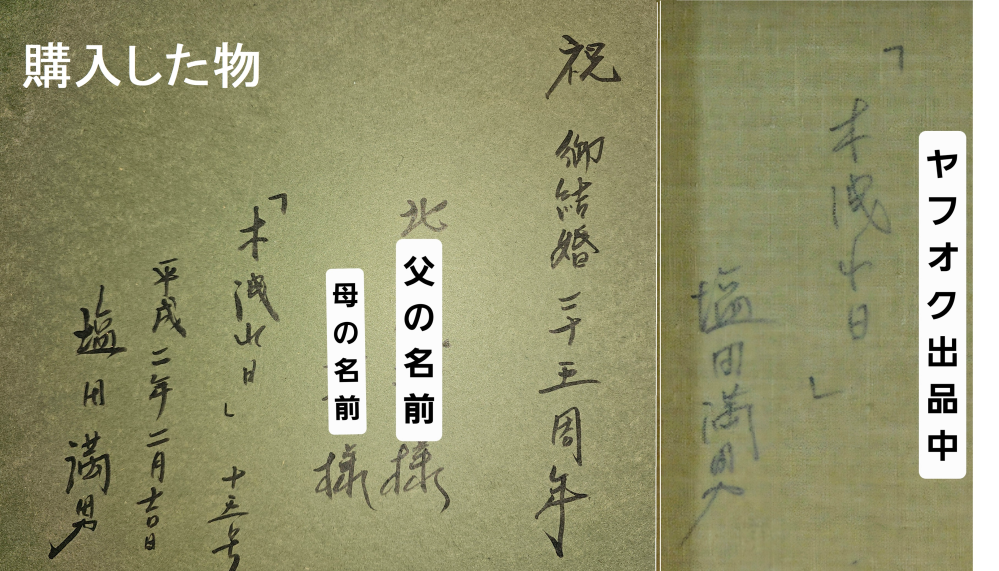 購入した物
祝 御結婚 二十五周年
北
父の名前
様
母の名前
様
「木洩れ日」 十五号
平成二年二月吉日
塩田満男
ヤフオク出品中
「木洩れ日」
塩田満男